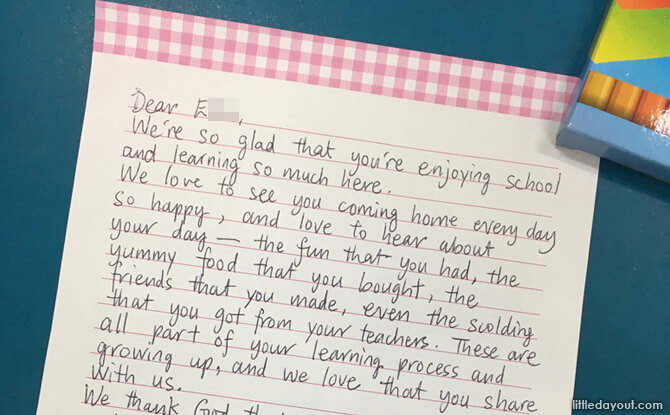 Dear E,
We're so glad that you're enjoying school
and learning so much here.
We love to see you coming home every day
so happy, and love to hear about
your day — the fun that you had, the
yummy food that you bought, the
friends that you made, even the scolding
that you got from your teachers. These are
all part of your learning process and
growing up, and we love that you share
with us.
We thank God
littledayout.com